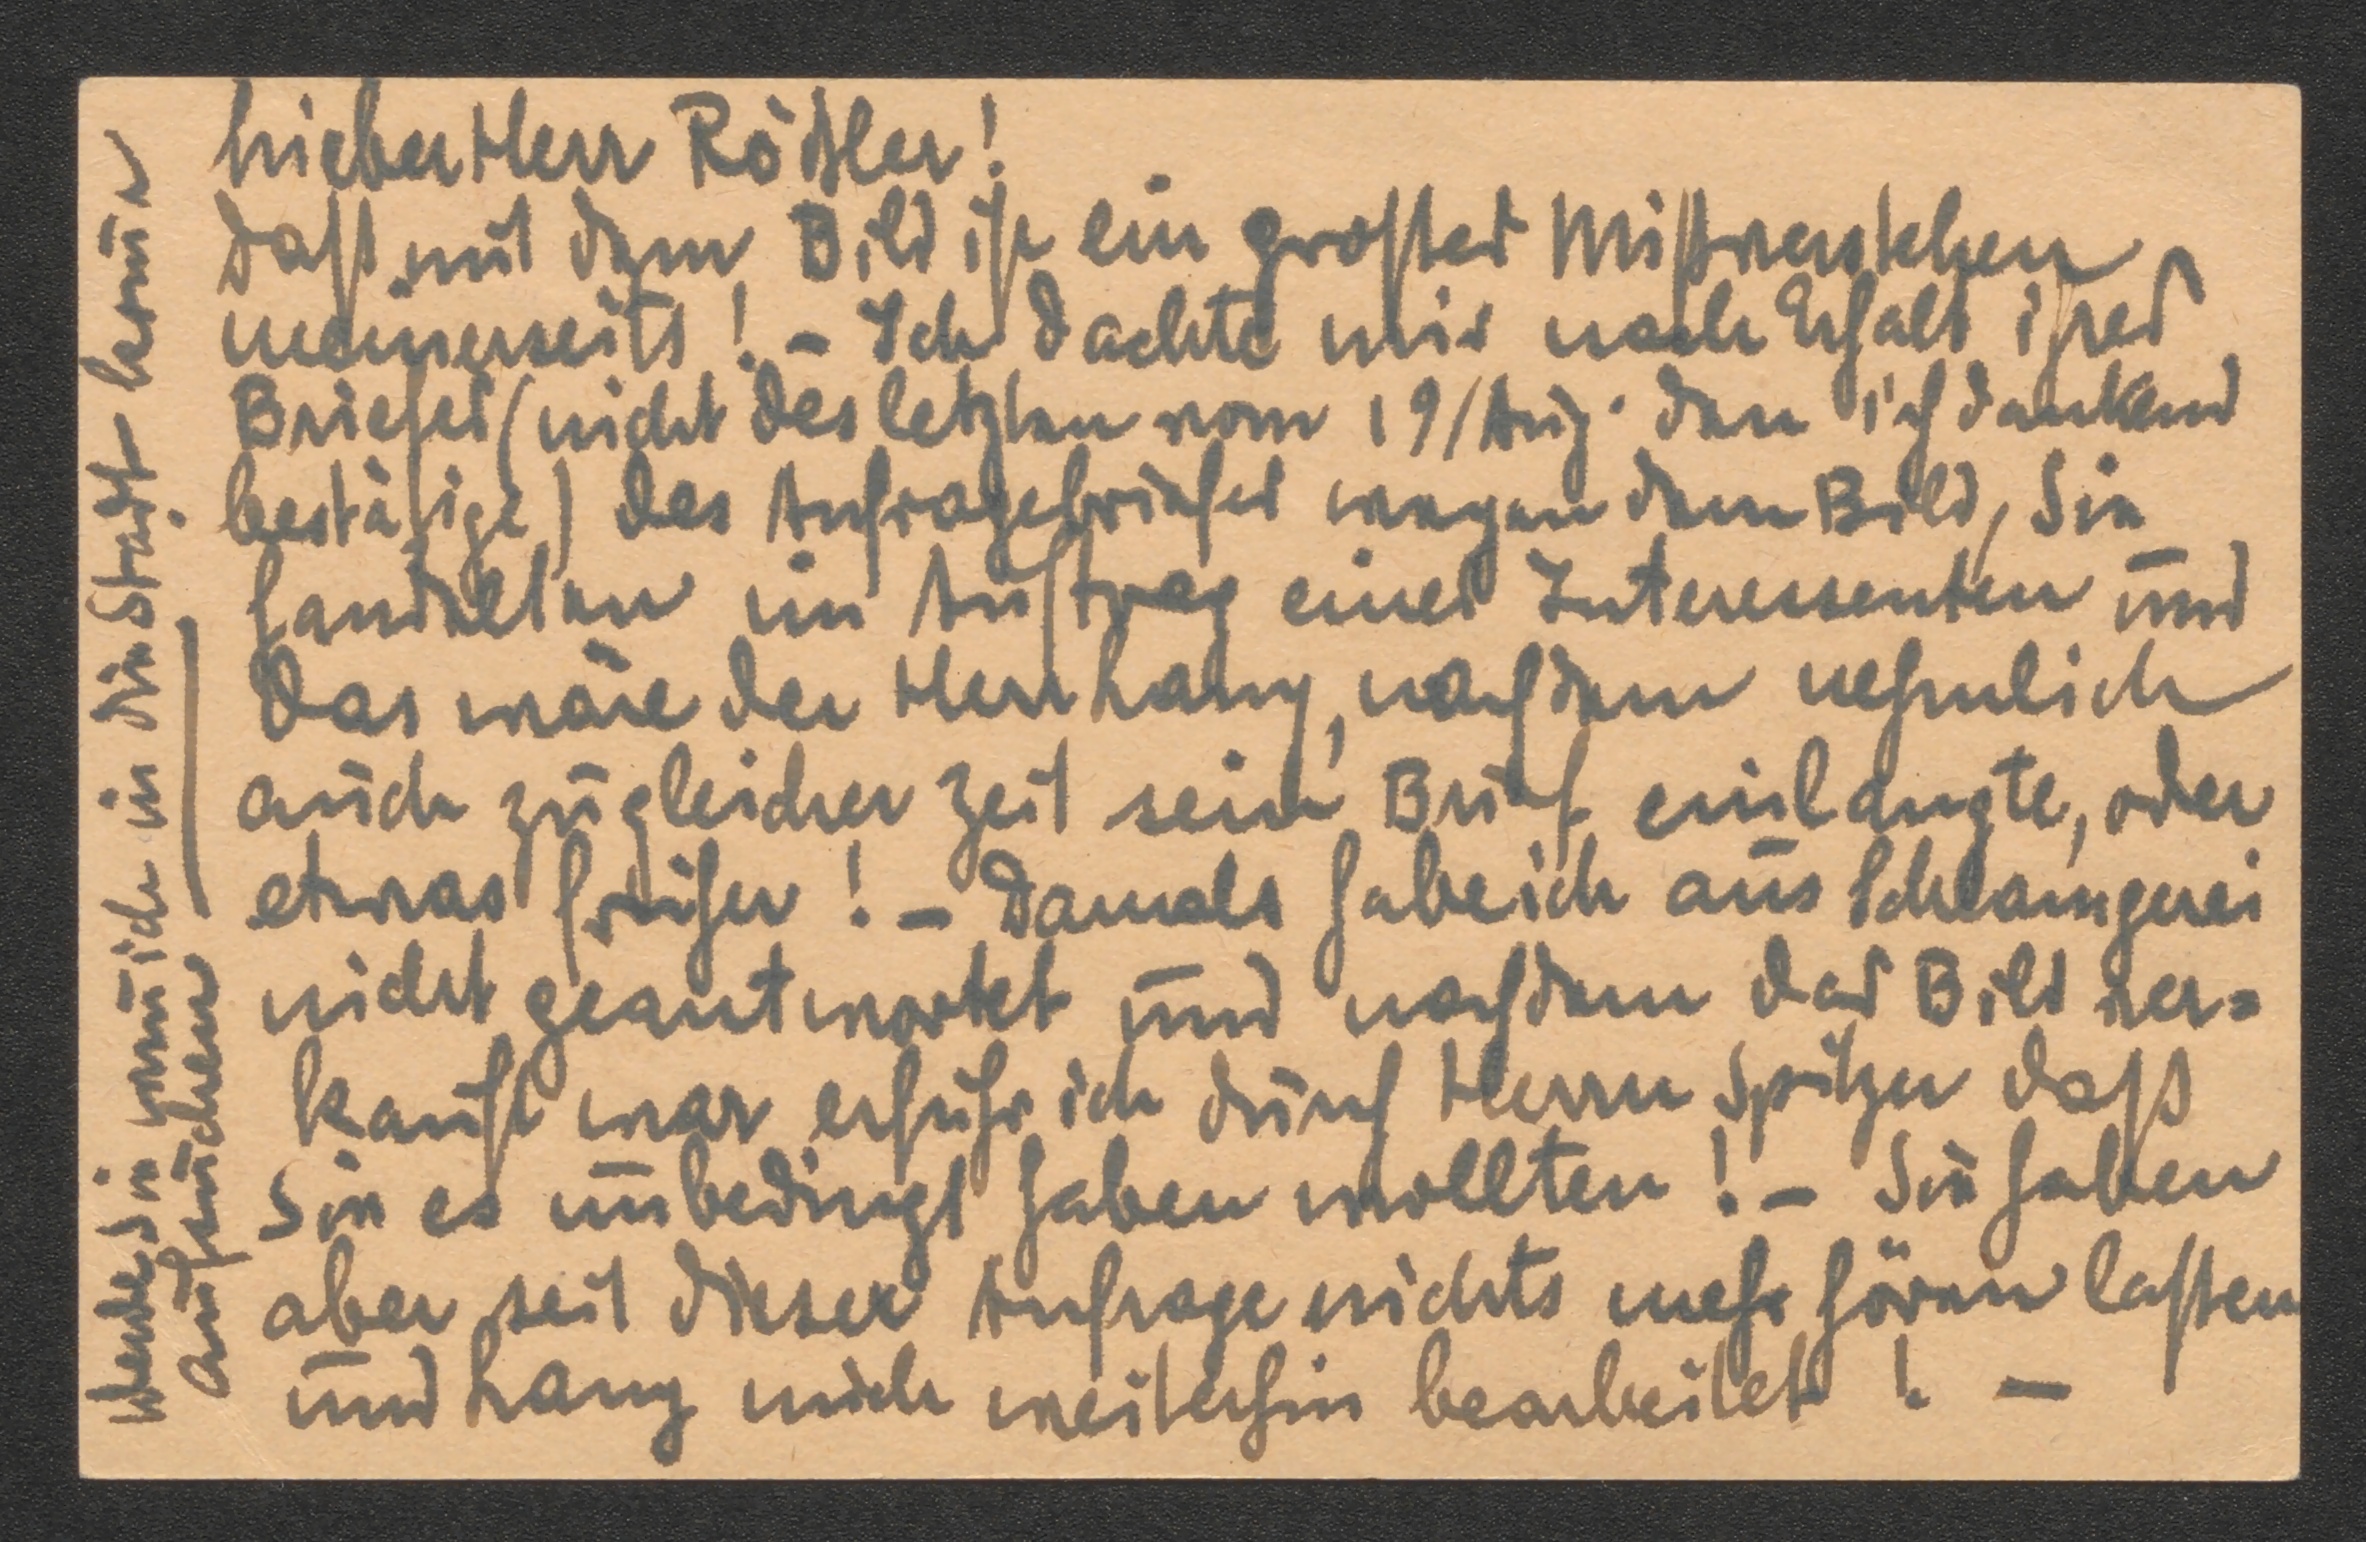 Lieber Herr Rödler!
Daß mit dem Bild ist ein großes Mißverstehen
meinerseits! – Ich dachte mir nach Erhalt ihres
Briefes (nicht des letzten vom 19/Aug. den ich dankend
bestätige) des Anfragebriefes wegen dem Bild, Sie
handelten im Auftrag eines Interessenten und
das wäre der Herr Lang, nachdem nehmlich
auch zu gleicher Zeit sein Brief einlangte, oder
etwas früher! – Damals habe ich aus Schlamperei
nicht geantwortet und nachdem das Bild ver=
kauft war erfuhr ich durch Herrn Spitzer daß
Sie es unbedingt haben wollten! – Sie haben
aber seit dieser Anfrage nichts mehr hören laßen
und Lang mich weiterhin bearbeitet! –
Werde Sie wenn ich in die Stadt komm
aufsuchen